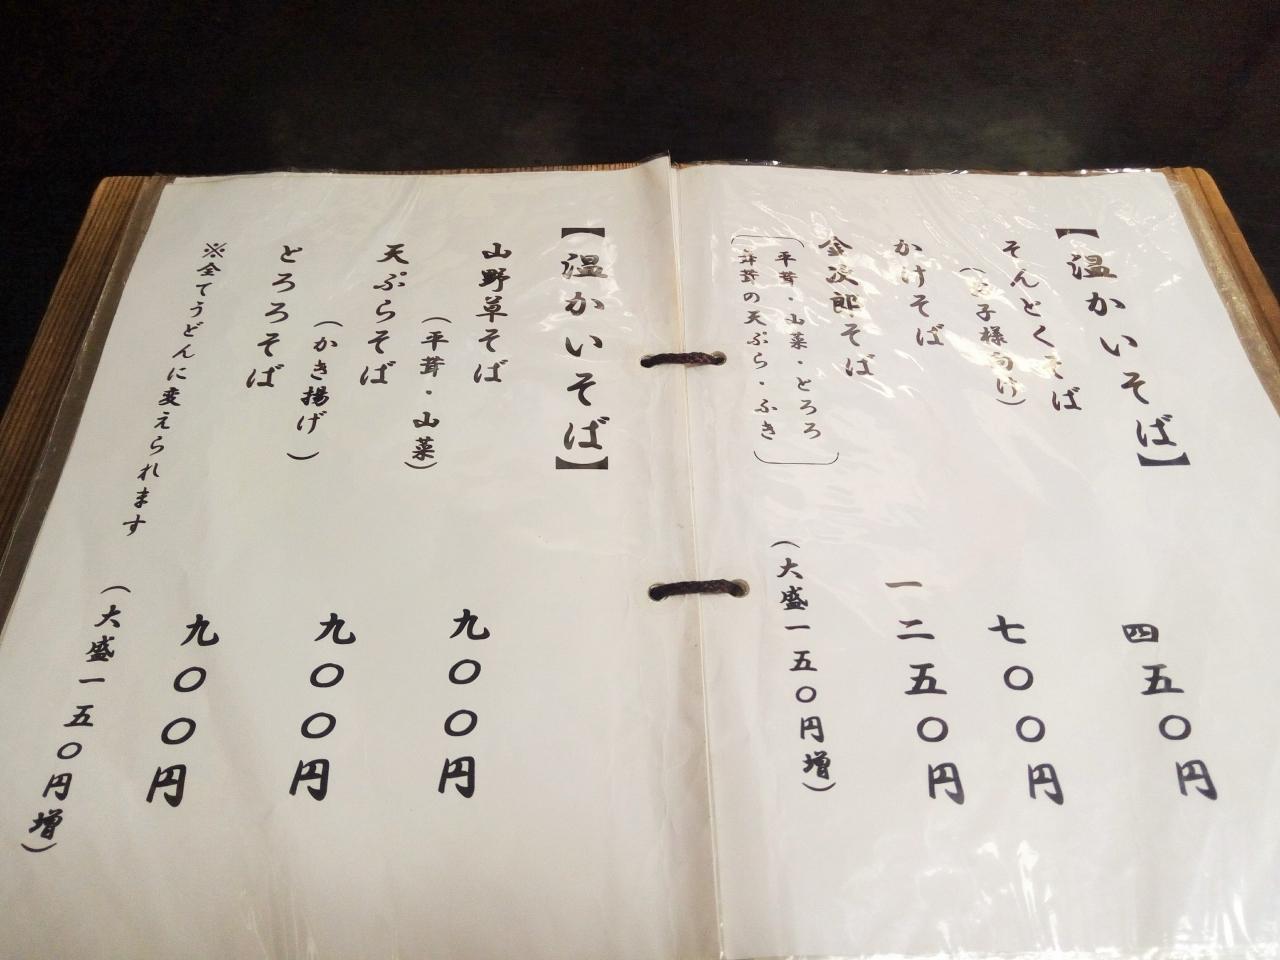 【温かいそば】
そんとくそば
四五〇円
(お子様向け)
かけそば
七〇〇円
金次郎そば
一二五〇円
平茸・山菜・とろろ
舞茸の天ぷら・ふき
(大盛一五〇円増)
【温かいそば】
山野草そば
九〇〇円
(平茸・山菜)
天ぷらそば
九〇〇円
(かき揚げ)
とろろそば
九〇〇円
※全てうどんに変えられます
(大盛一五〇円増)